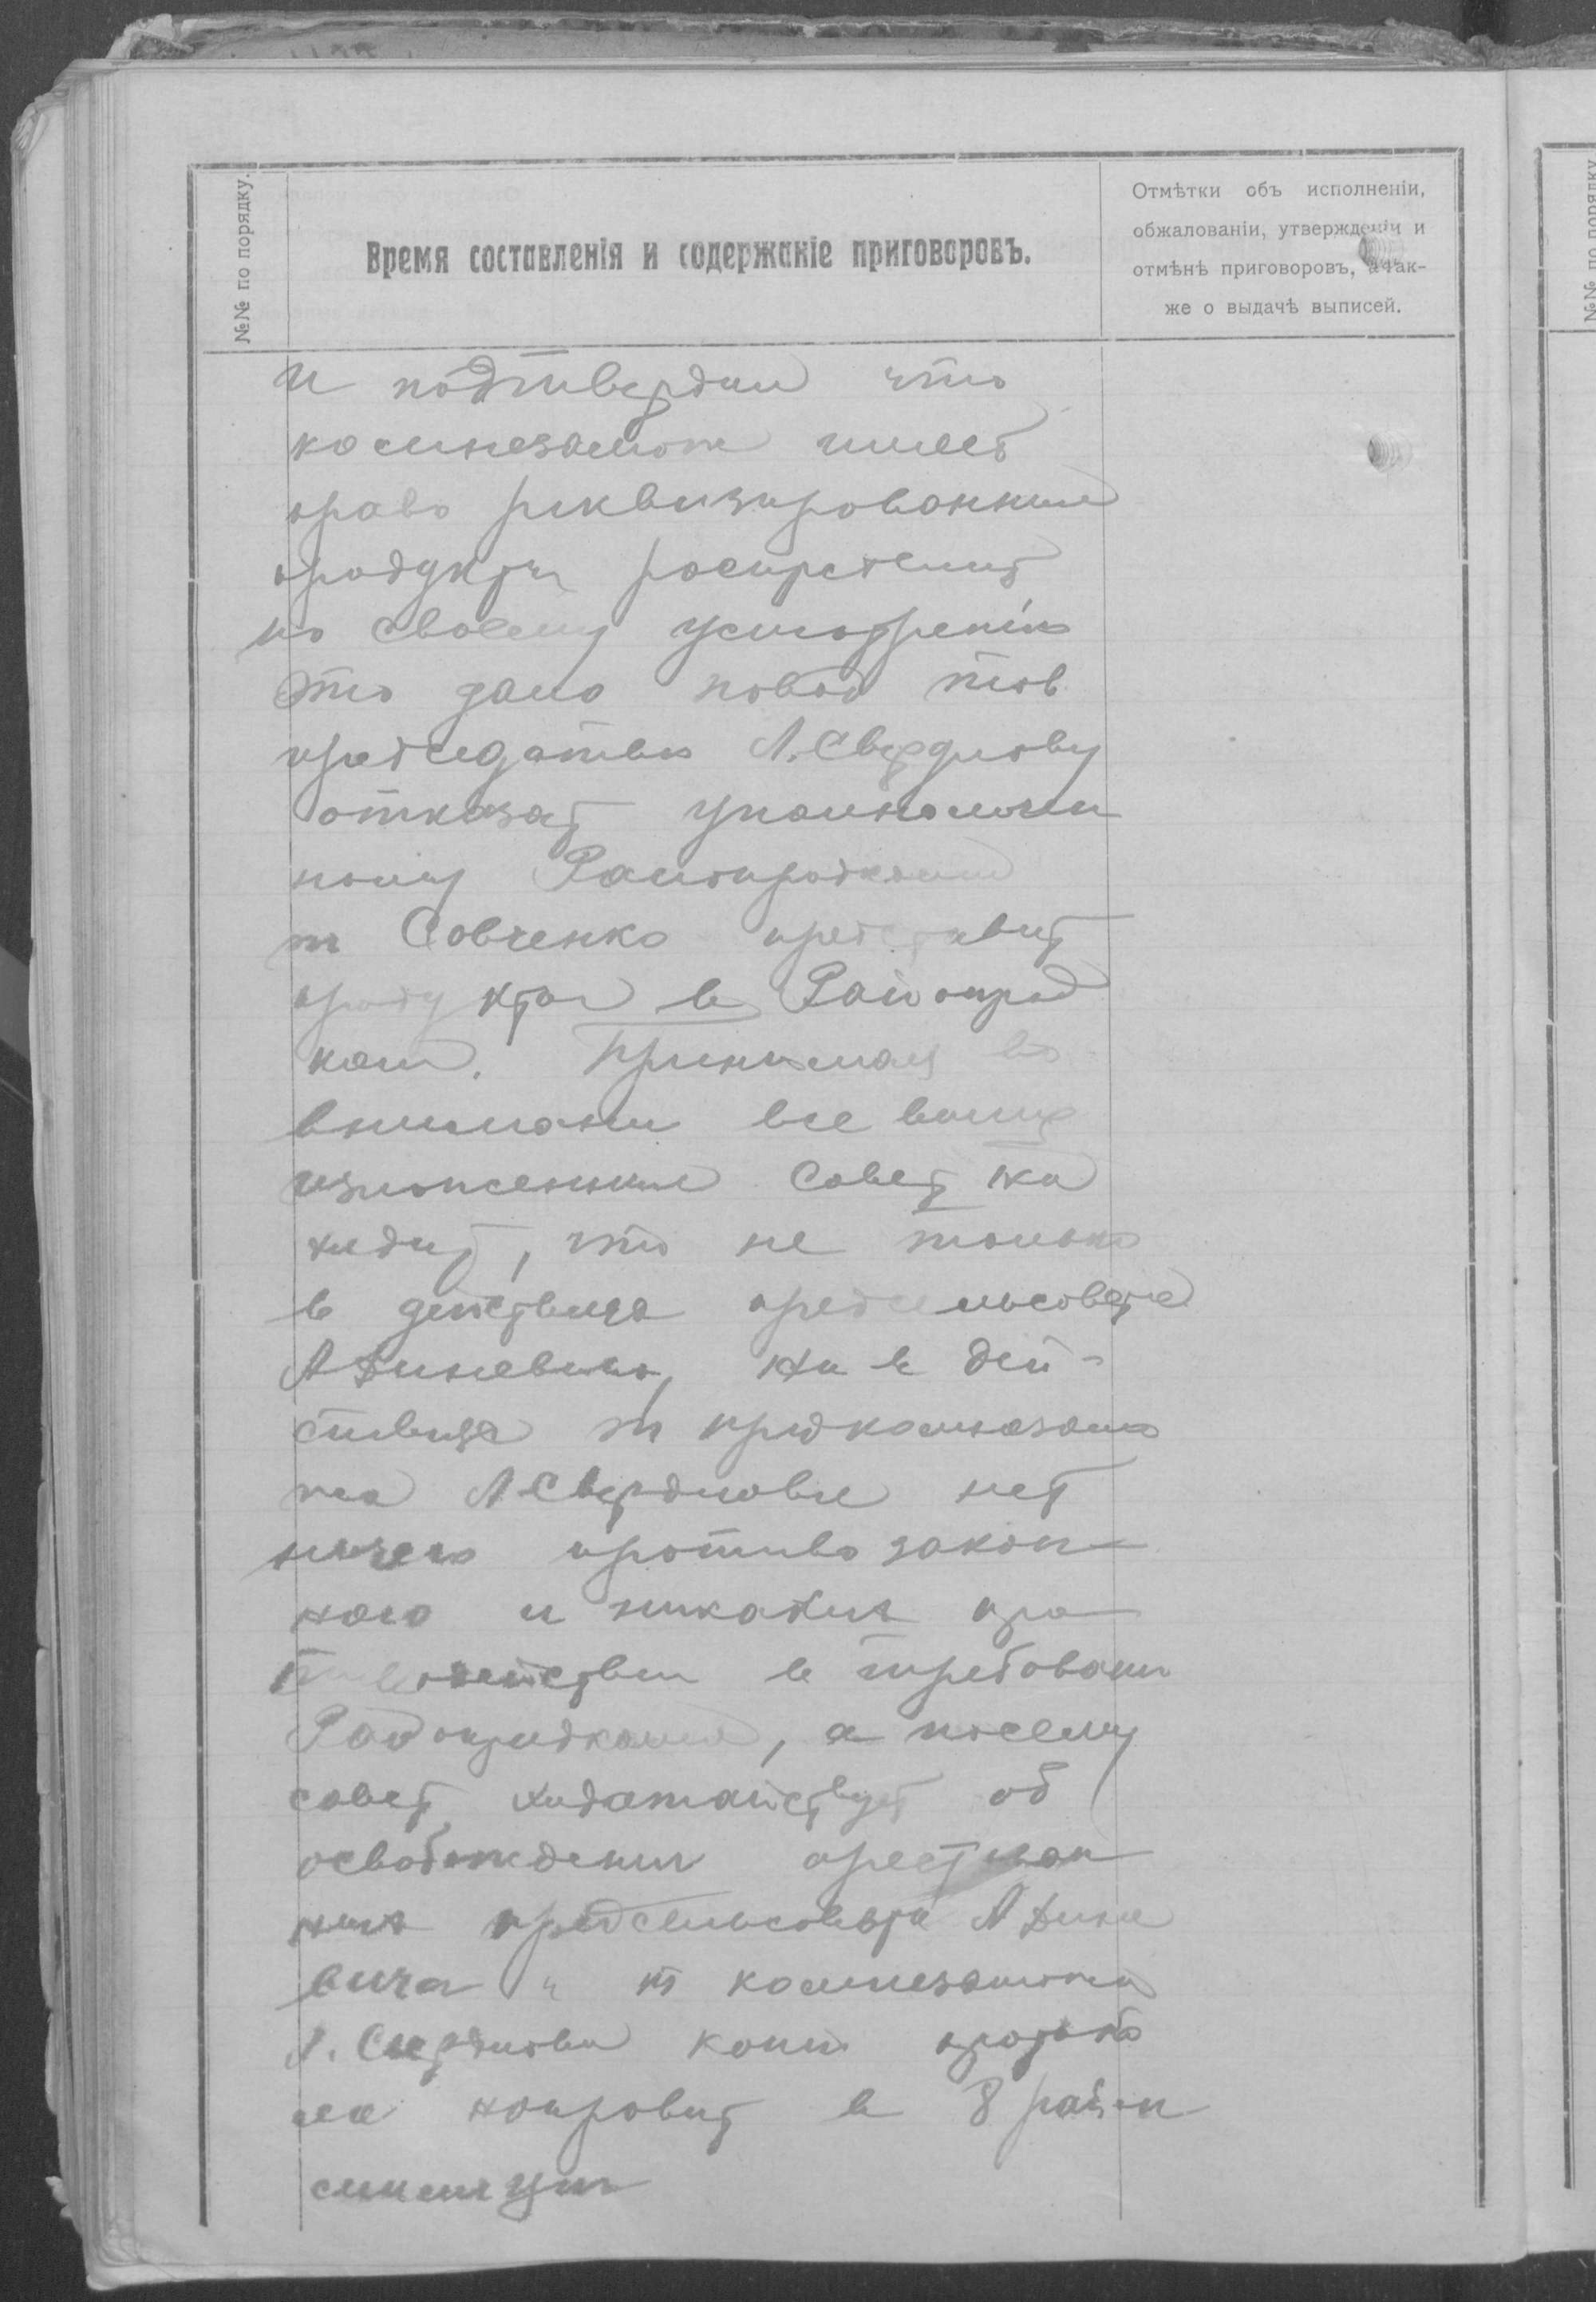 №№ по порядку.
Время составленія и содержаніе приговоровъ.
Отмѣтки объ исполненіи,
обжалованіи, утвержденіи и
отмѣнѣ приговоровъ, а так-
же о выдачѣ выписей.
и подтвердил что
комнезамож имеет
право реквизированные
продукты распределит
по своему усмотренію
Это дало повод тов
председателю Л. Свердлову
отказат уполномочен
ному Райопродкома
т Совченко представит
продукты в Райопрод
ком. Принимая во
внимани все выше
изложенные Совет на
ходит, что не только
в действиях предсельсовета
А Диневича, ни в дей-
ствиях т предкомнезамо
жа Л Свердлова нет
ничего противозакон
ного и никаких про
тиводействи в требовани
Райопродкома, а посему
совет ходатайствует об
освобождении арестован
ных предсельсовета А Дине
вича и т комнезаможа
Л. Свердлова копи
направит в 8 район
милици